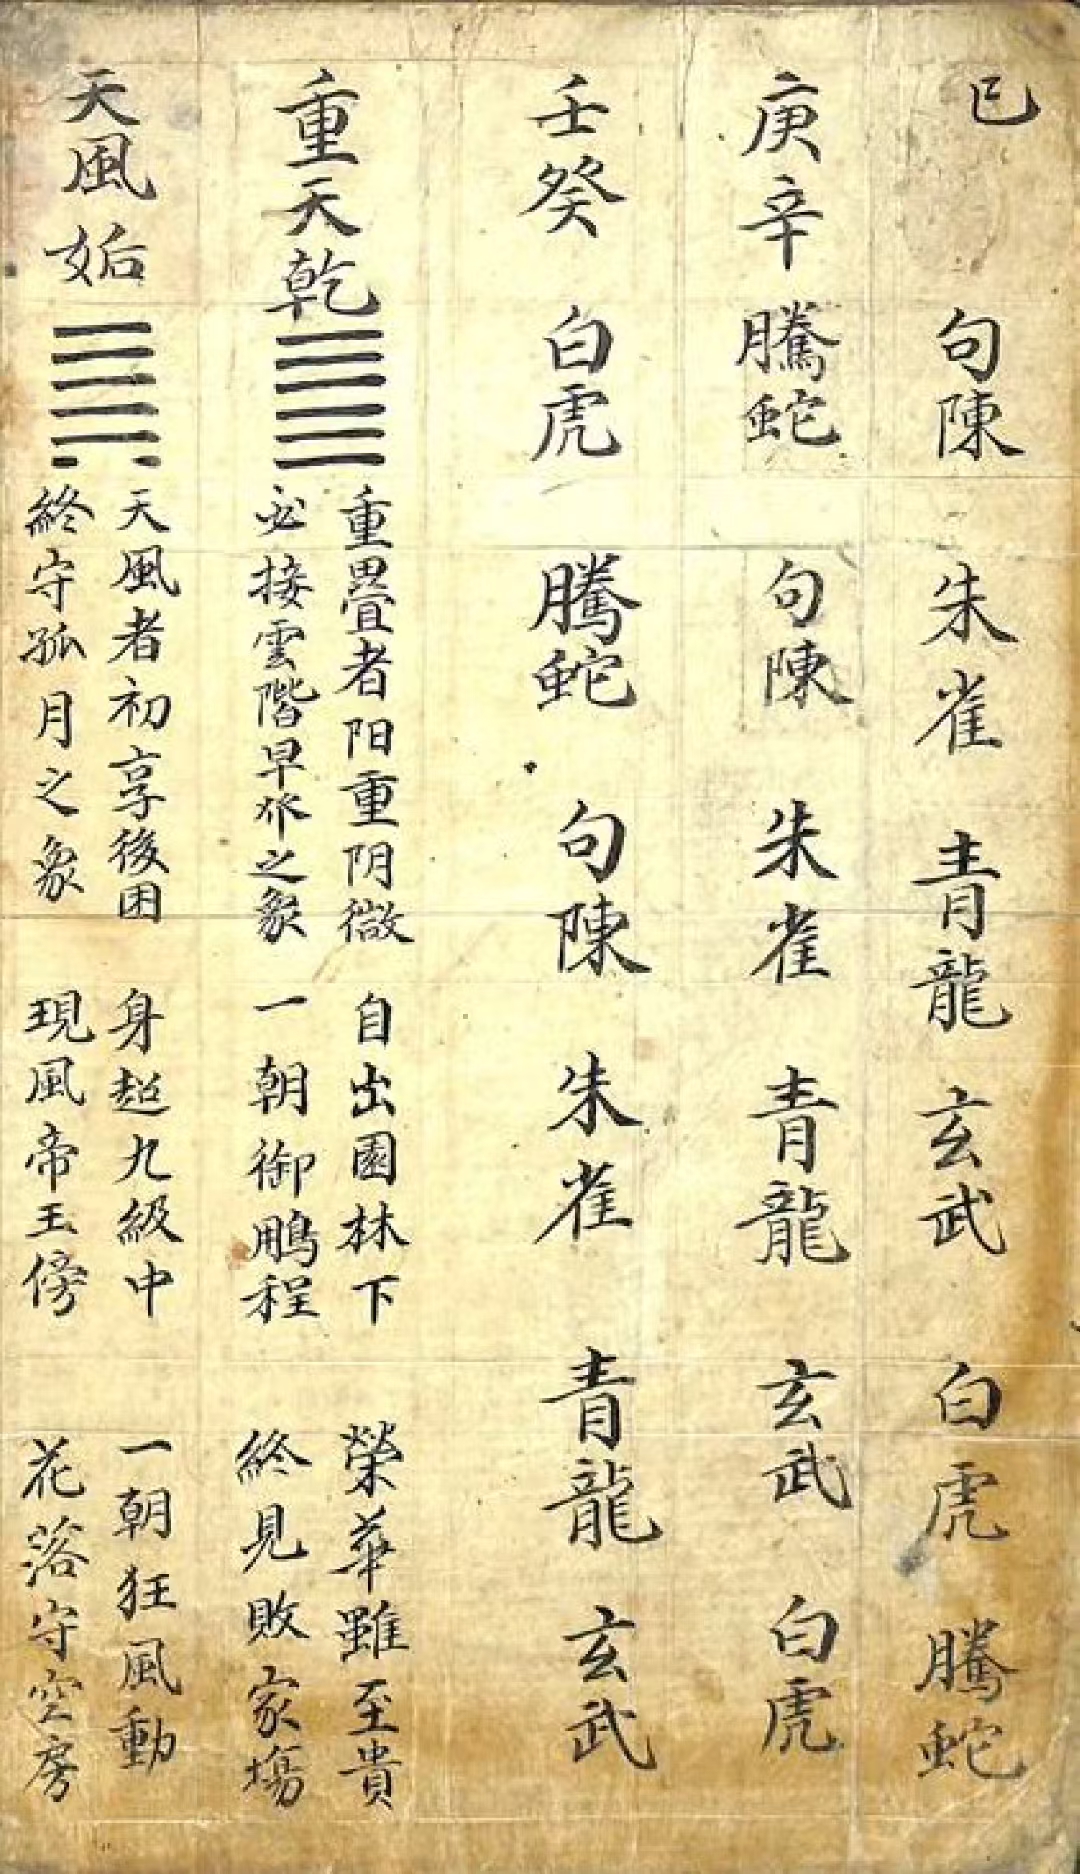 巳 句陳 朱雀 青龍 玄武 白虎 騰蛇
庚辛 騰蛇 句陳 朱雀 青龍 玄武 白虎
壬癸 白虎 騰蛇 句陳 朱雀 青龍 玄武
重天乾
重疊者阳重阴微 自出園林下 榮華雖至貴
必接雲階早之象 一朝御鵬程 終見敗家塲
天風姤
天風者初享後困 身超九級中 一朝狂風動
終守孤月之象 現風帝王傍 花落守空房